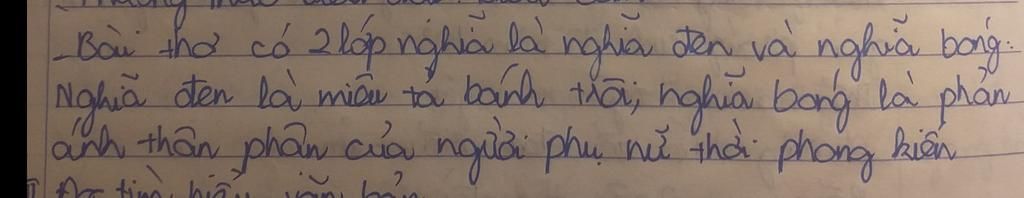 - Bài thơ có 2 lớp nghĩa là nghĩa đen và nghĩa bóng.
Nghĩa đen là miêu tả bánh trôi, nghĩa bóng là phản
ánh thân phận của người phụ nữ thời phong kiến